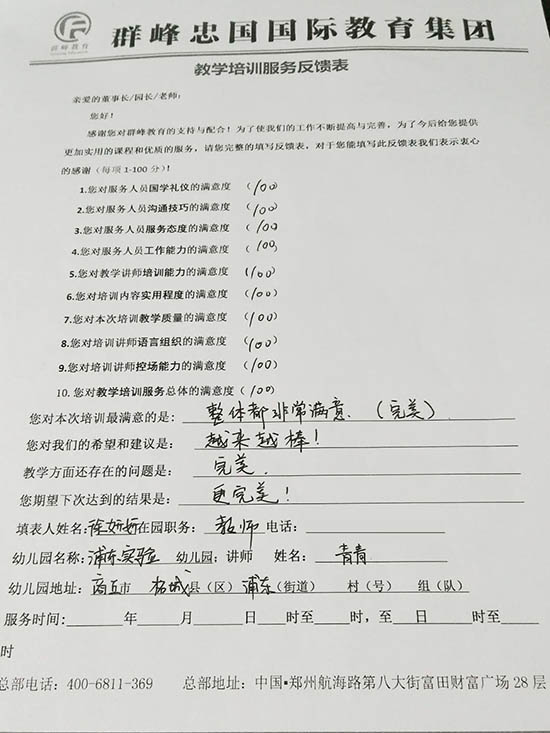 群峰教育
群峰忠国国际教育集团
教学培训服务反馈表
亲爱的董事长/园长/老师：
您好！
感谢您对群峰教育的支持与配合！为了使我们的工作不断提高与完善，为了今后给您提供
更加实用的课程和优质的服务，请您完整的填写反馈表，对于您能填写此反馈表我们表示衷心
的感谢（每项1-100分）！
1.您对服务人员国学礼仪的满意度 （100）
2.您对服务人员沟通技巧的满意度 （100）
3.您对服务人员服务态度的满意度 （100）
4.您对服务人员工作能力的满意度 （100）
5.您对教学讲师培训能力的满意度 （100）
6.您对培训内容实用程度的满意度 （100）
7.您对本次培训教学质量的满意度 （100）
8.您对培训讲师语言组织的满意度 （100）
9.您对培训讲师控场能力的满意度 （100）
10. 您对教学培训服务总体的满意度（100）
您对本次培训最满意的是：整体都非常满意.（完美）
您对我们的希望和建议是：越来越棒！
教学方面还存在的问题是：完美.
您期望下次达到的结果是：更完美！
填表人姓名：徐妍妍在园职务：教师 电话：
幼儿园名称：浦东实验 幼儿园；讲师 姓名：青青
幼儿园地址：商丘市 柘城县（区）浦东（街道） 村（号） 组（队）
服务时间：年 月 日 时至 时，至 日 时至
时
总部电话：400-6811-369 总部地址：中国•郑州航海路第八大街富田财富广场28层